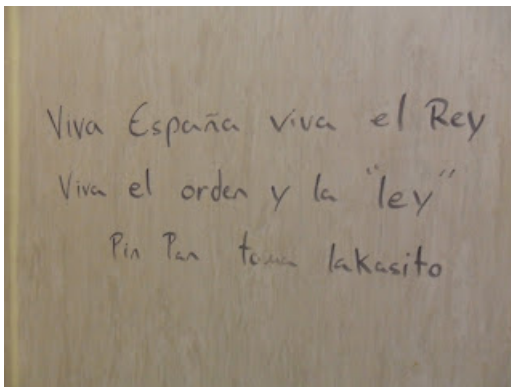 Viva España viva el Rey
Viva el orden y la "ley"
Pin Pan toma lakasito